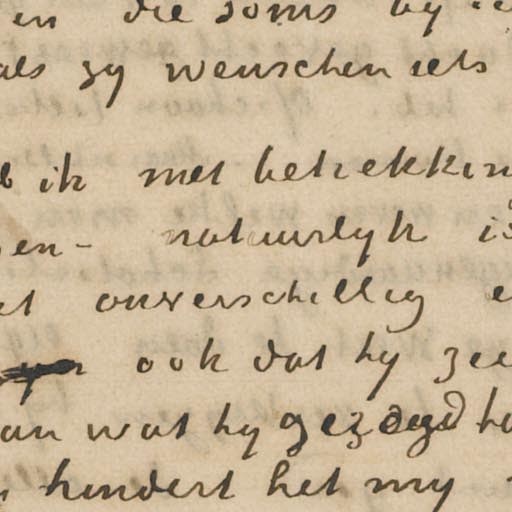 en die soms by
als zy wenschen iets
ik met betrekkin
en - natuurlyk is
et onverschillig e
ook dat hy zee
an wat hy gezegd ha
hindert het my